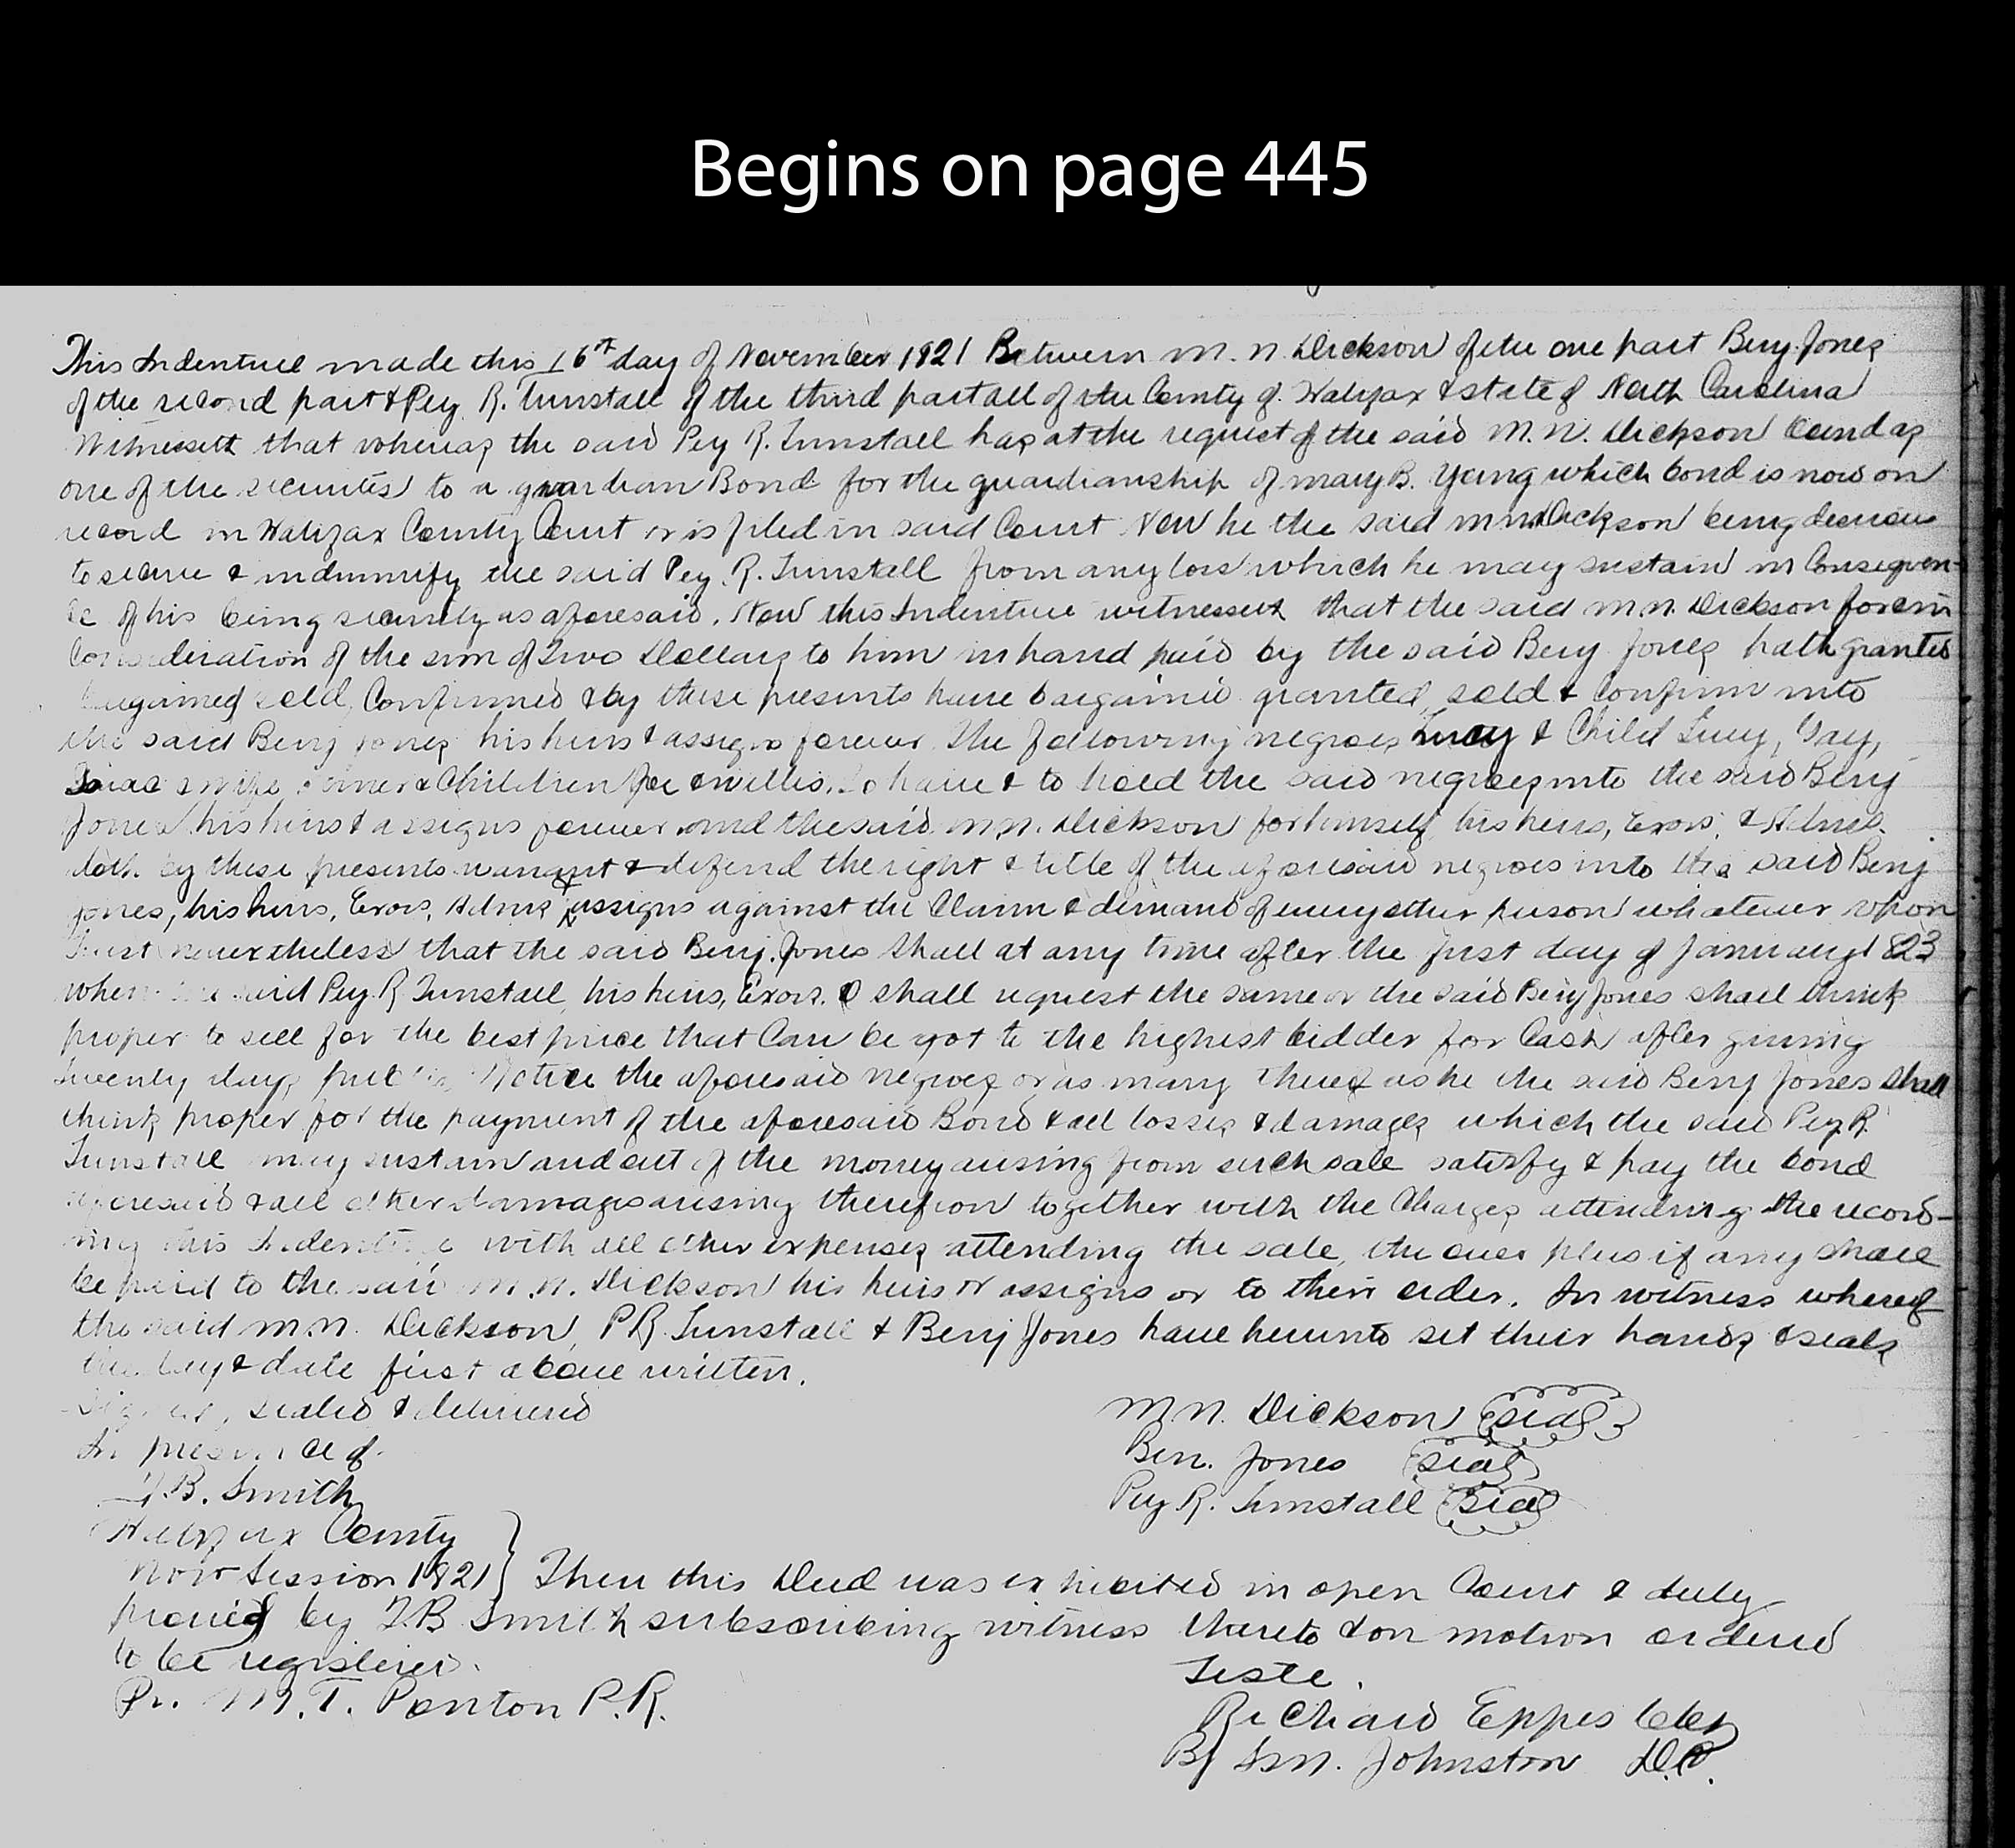 Begins on page 445
This Indenture made this 16th day of November 1821 Between M. N. Dickson of the one part Benj. Jones
of the second part & Pey R. Tunstall of the third part all of the County of Halifax & state of North Carolina
Witnesseth that whereas the said Pey R. Tunstall has at the request of the said M. N. Dickson bound as
one of the securities to a guardian Bond for the guardianship of Mary B. Young which bond is now on
record in Halifax County Court or is filed in said Court Now he the said M N Dickson being desirous
to secure & indemnify the said Pey. R. Tunstall from any loss which he may sustain in Consequen-
ce of his being security as aforesaid. Now this Indenture witnesseth that the said M. N. Dickson for & in
Consideration of the sum of Two Dollars to him in hand paid by the said Benj Jones hath granted
bargained sold, Confirmed & by these presents have bargained granted, sold & Confirm unto
the said Benj Jones his heirs & assigns forever the following negroes Lucy & Child Lucy,
wife & Children & Willis. To have & to hold the said negroes unto the said Benj
Jones his heirs & assigns forever and the said M. N. Dickson for himself, his heirs, Exors, & Admrs.
doth by these presents warrant & defend the right & title of the aforesaid negroes unto the said Benj
Jones, his heirs, Exors, Admrs & assigns against the Claim & demand of every other person whatever upon
Trust nevertheless that the said Benj. Jones shall at any time after the first day of January 1823
when the said Pey R Tunstall, his heirs, Exors. shall request the same or the said Benj Jones shall think
proper to sell for the best price that Can be got to the highest bidder for Cash after giving
twenty days public Notice the aforesaid negroes or as many thereof as he the said Benj Jones shall
think proper for the payment of the aforesaid Bond & all losses & damages which the said Pey. R.
Tunstall may sustain and out of the money arising from such sale satisfy & pay the bond
aforesaid & all other damages arising therefrom together with the Charges attending the record-
ing this Indenture with all other expenses attending the sale, the over plus if any shall
be paid to the said M. N. Dickson his heirs or assigns or to their order. In witness whereof
the said M. N. Dickson, P R. Tunstall & Benj Jones have hereunto set their hands & seals
the day & date first above written.
Signed, sealed & delivered
In presence of
M N. Dickson (seal)
Ben. Jones (seal)
Pey R. Tunstall (seal)
B. Smith
Halifax County
Nov Session 1821 } Then this Deed was exhibited in open Court & duly
proved by B Smith subscribing witness thereto & on motion ordered
to be registered.
Teste.
Pr. M. T. Ponton P. R.
Richard Eppes Clk
By M. Johnston D.C.